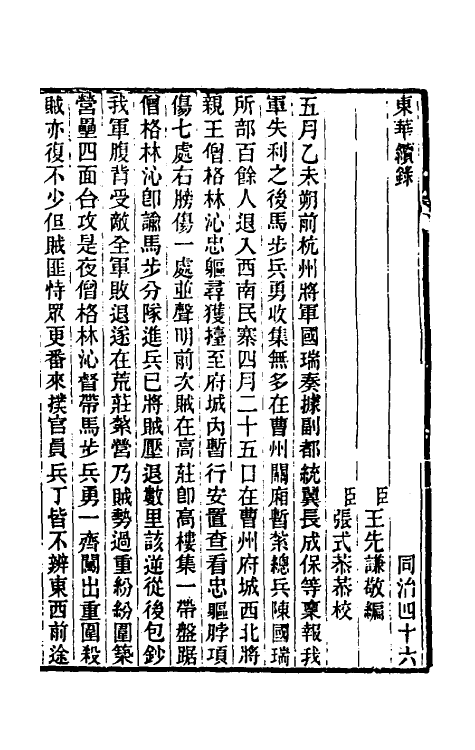 東華續錄　同治四十六
臣王先謙敬編
臣張式恭恭校
五月乙未朔前杭州將軍國瑞奏據副都統翼長成保等稟報我
軍失利之後馬步兵勇收集無多在曹州關廂暫紮總兵陳國瑞
所部百餘人退入西南民寨四月二十五口在曹州府城西北將
親王僧格林沁忠軀尋獲擡至府城內暫行安置查看忠軀脖項
傷七處右膀傷一處並聲明前次賊在高莊卽高樓集一帶盤踞
僧格林沁卽諭馬步分隊進兵已將賊壓退數里該逆從後包鈔
我軍腹背受敵全軍敗退遂在荒莊紮營乃賊勢過重紛紛圍築
營壘四面台攻是夜僧格林沁督帶馬步兵勇一齊闖出重圍殺
賊亦復不少但賊匪恃眾更番來撲官員兵丁皆不辨東西前途